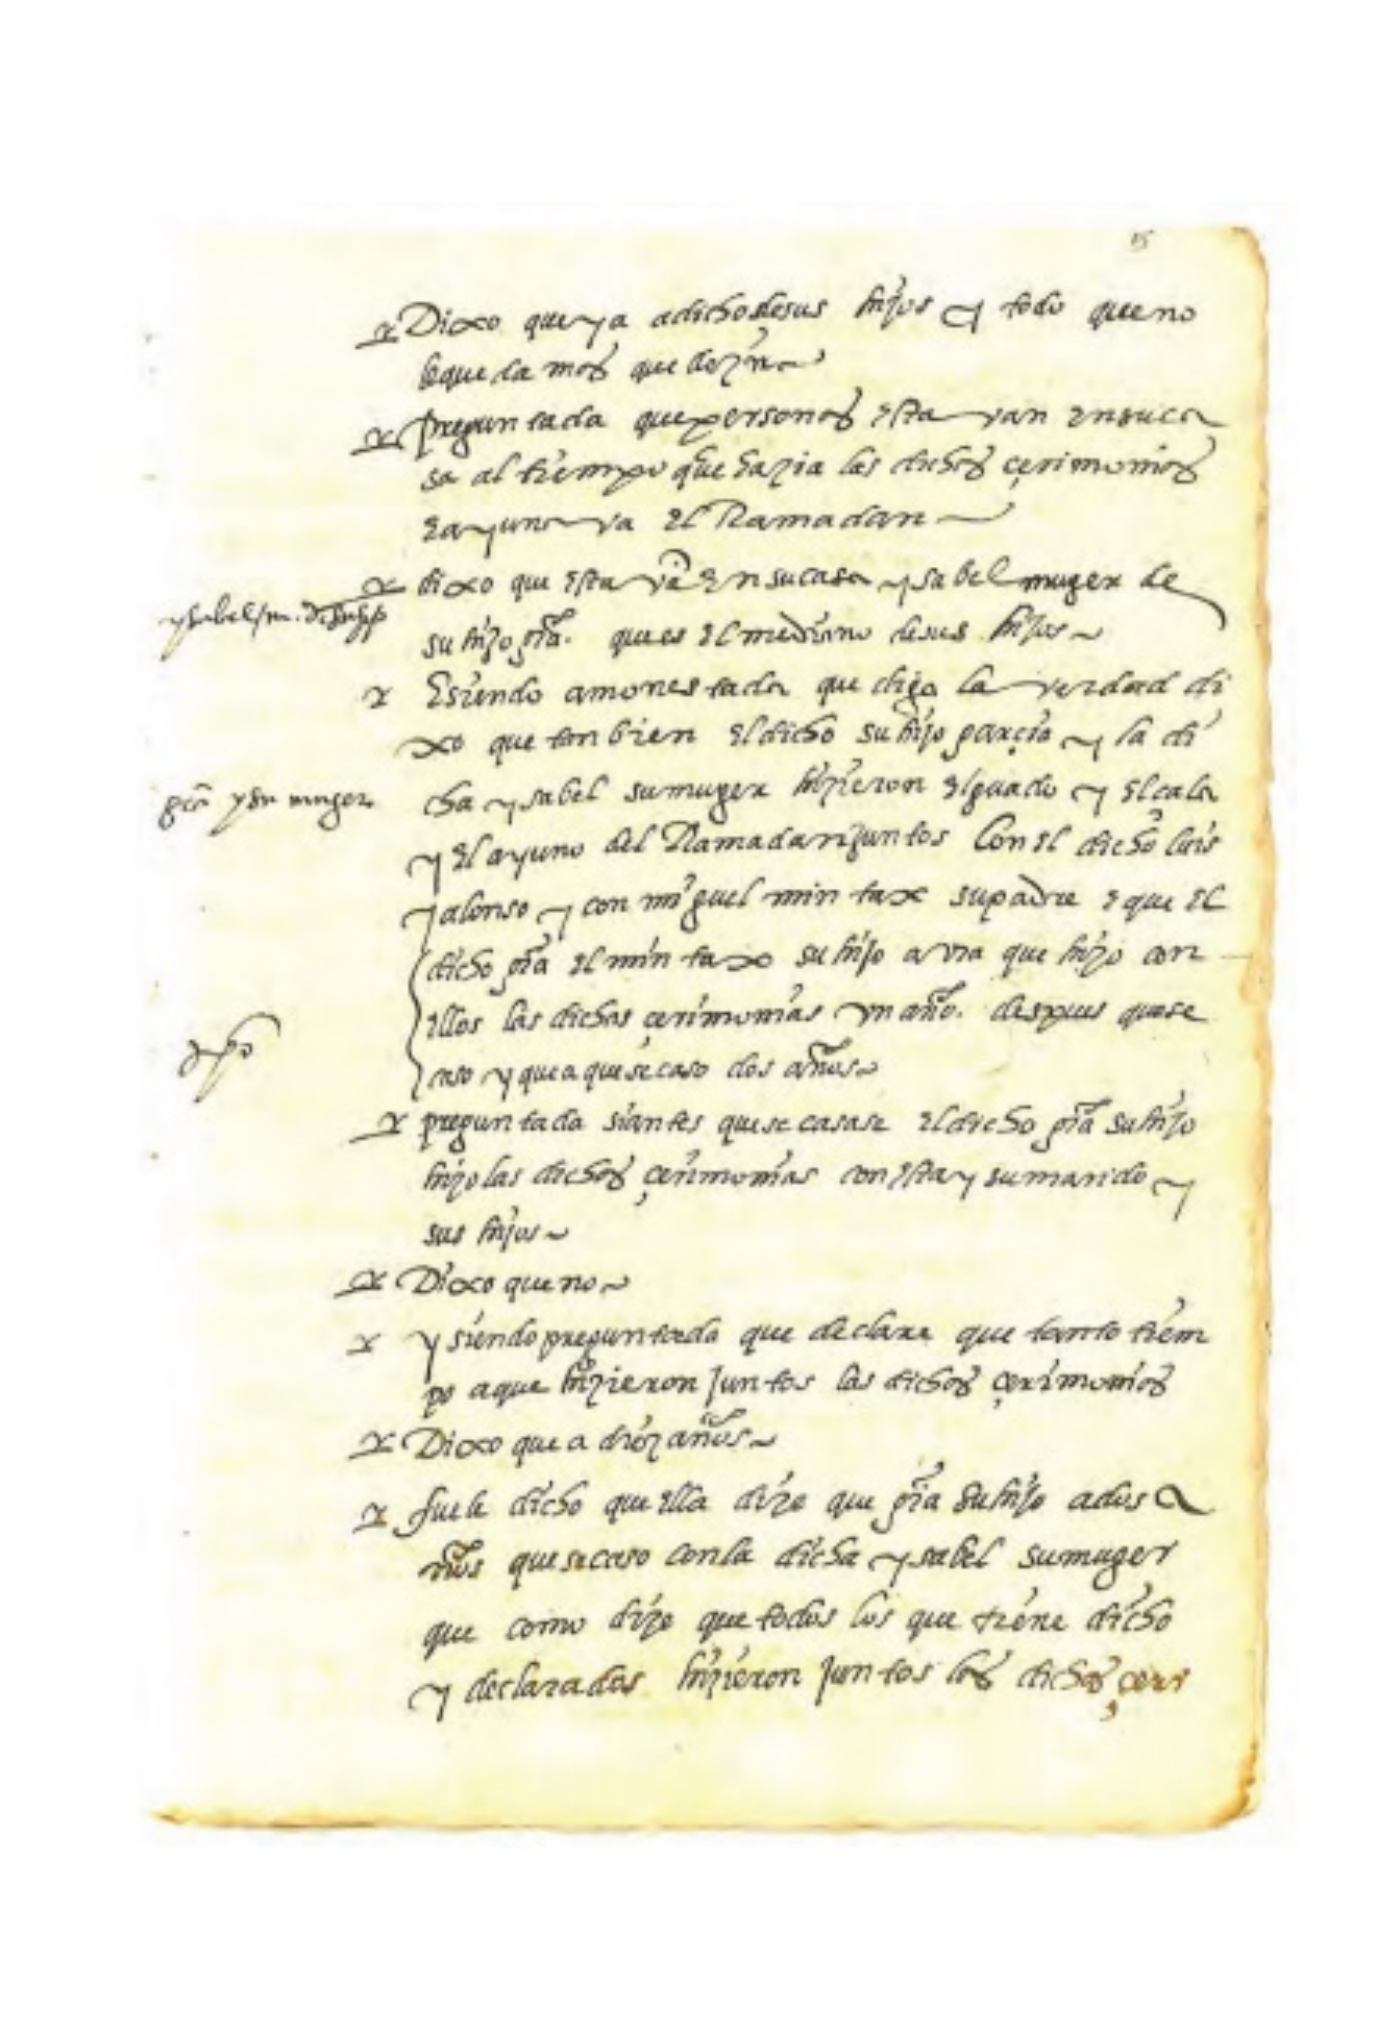 Dixo que ya a dicho de sus hijos y todo que no
le queda mas que dezir
preguntada que personas estavan en su ca
sa al tiempo que hazia las dichas çerimonias
e ayunava el Ramadan
dixo que estava en su casa ysabel muger de
su hijo gra. que es el mediano de sus hijos
E siendo amonestada que diga la verdad di
xo que tanbien el dicho su hijo garçia y la di
cha ysabel su muger hizieron el guado y el cala
y el ayuno del Ramadan juntos Con el dicho luis
y alonso y con miguel mintax su padre e que el
dicho gra el mintaxo su hijo avra que hizo con
ellos las dichas çerimonias un año. despues que se
caso y que a que se caso dos años
preguntada si antes que se casase el dicho gra su hijo
hizo las dichas çerimonias con esta y su marido y
sus hijos
Dixo que no
y siendo preguntada que declare que tanto tiem
po a que hizieron juntos las dichas çerimonias
Dixo que a diez años
fuele dicho que ella dize que gra su hijo a dos a
ños que se caso con la dicha ysabel su muger
que como dize que todos los que tiene dicho
y declarados hizieron juntos las dichas çeri
ysabel
y su muger